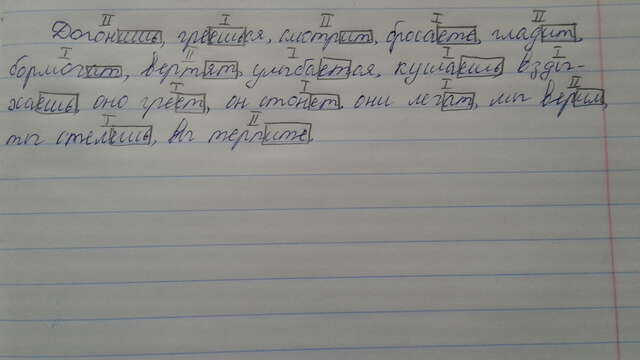 II I II I II
Догонишь, греешься, смотрит, бросаеть, гладит,
I II I I I
бормочит, вертят, улыбается, кушаешь взды-
I I I II
хаешь, оно греет, он стонет, они летят, мы верим,
I II
ты стелешь, вы терпите.